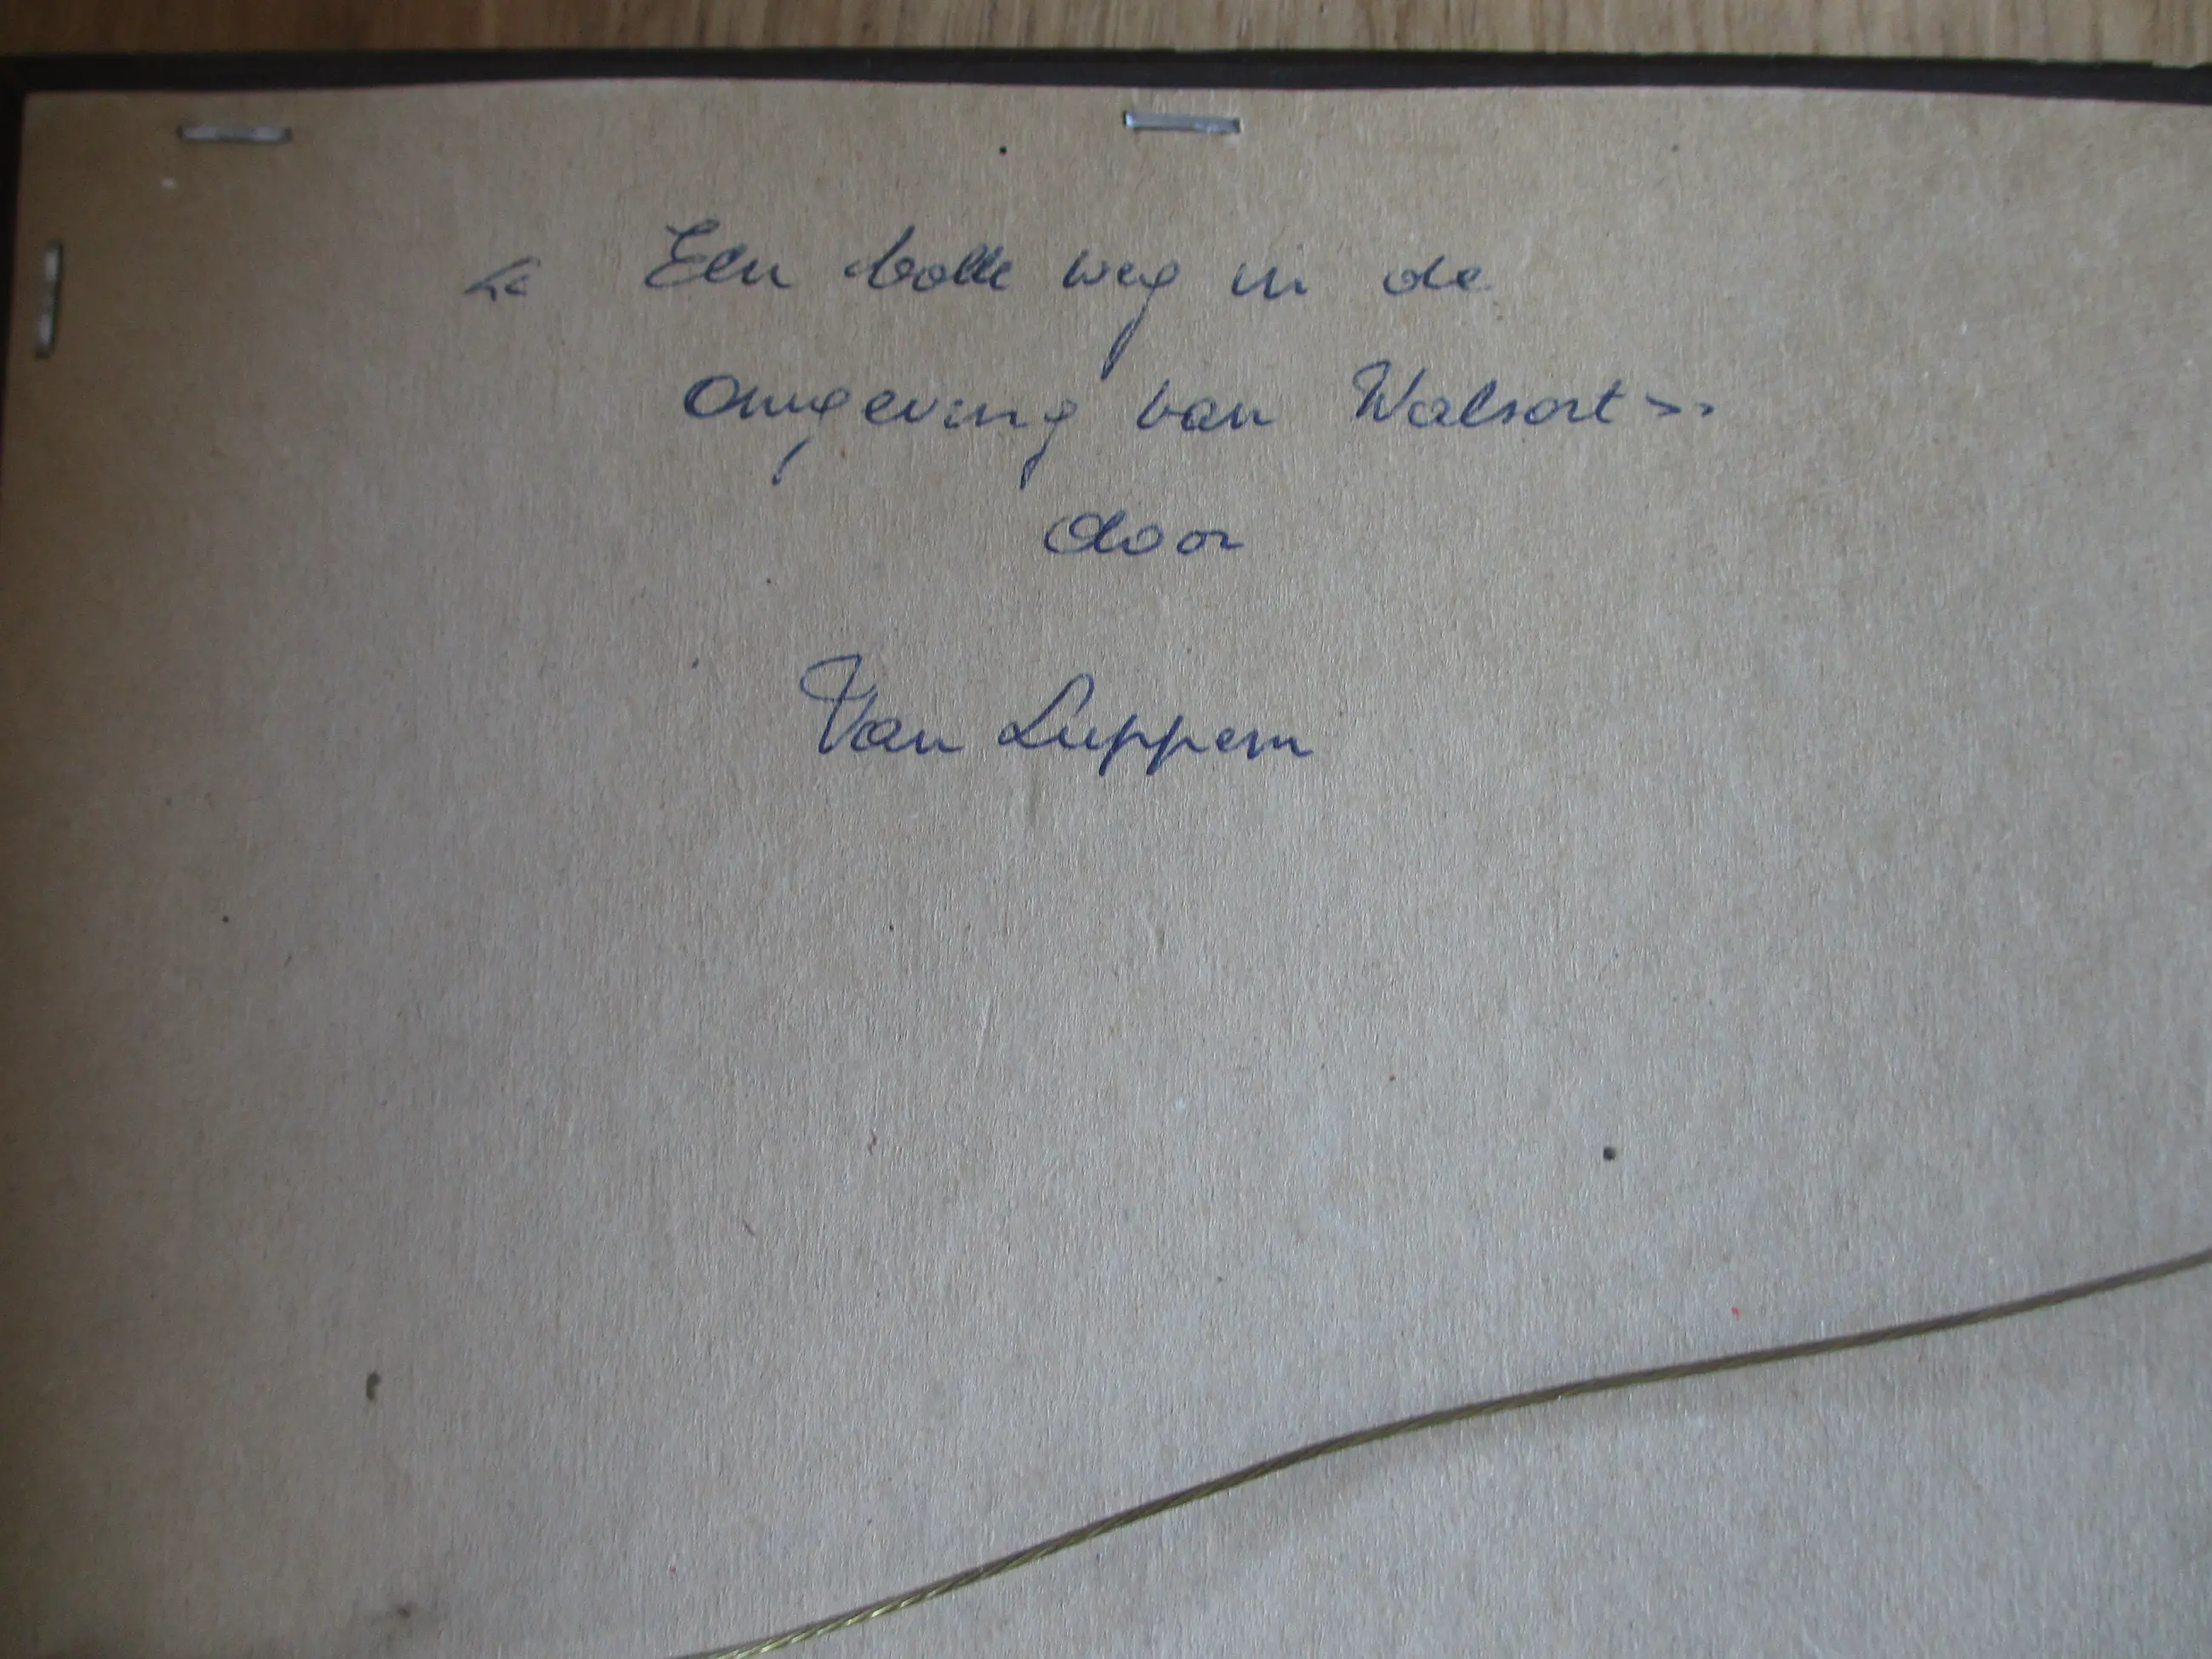 << Een holle weg in de
omgeving van Walsort >>
door
Van Luppem